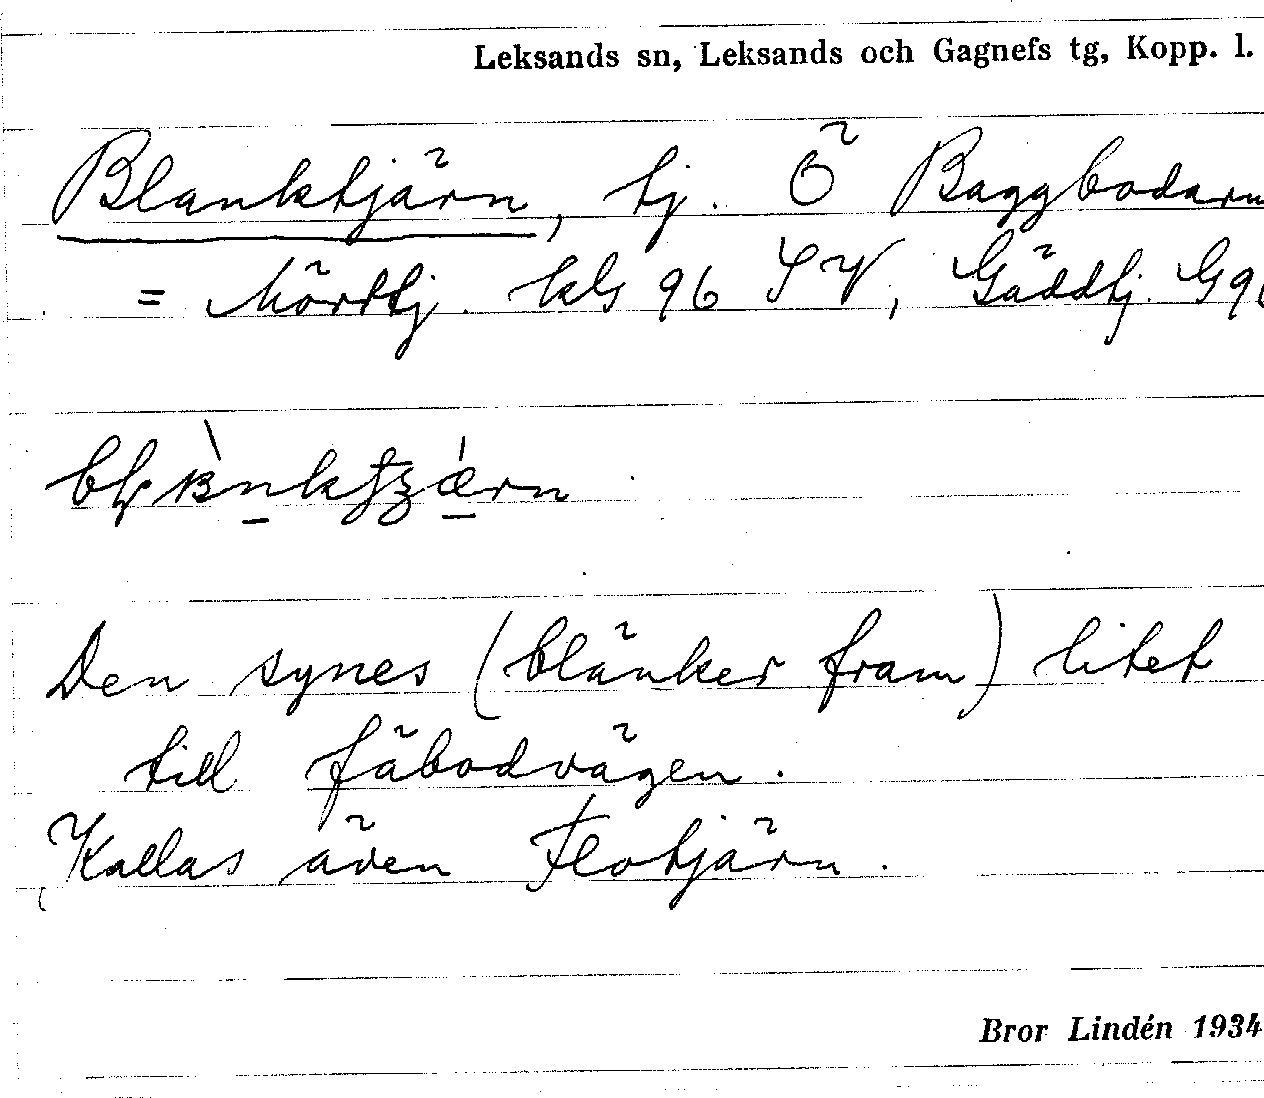 Leksands sn, Leksands och Gagnefs tg, Kopp. l.
Blanktjärn, tj. Ö Baggbodarn
= Mörttj. kbl 96 SV, Gäddtj. G 96
Den synes (blänker fram) litet
till fäbodvägen.
Kallas även Flotjärn.
Bror Lindén 1934